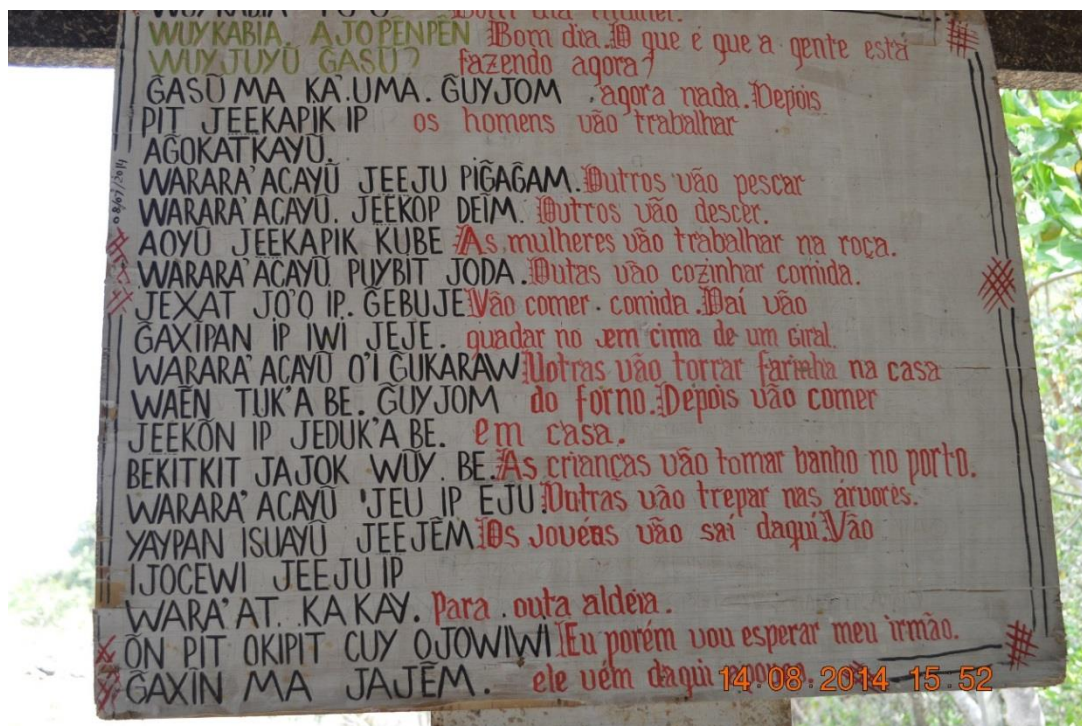 Bom dia mulher.
WUYKABIA. AJOPẼNPẼN Bom dia. O que é que a gente está
WUYJUYŨ G̃ASŨ? fazendo agora?
G̃ASŨ MA KA'UMA. G̃UYJOM agora nada. Depois
PIT JEEKAPIK IP os homens vão trabalhar
AG̃OKATKAYŨ.
WARARA'ACAYŨ JEEJU PIG̃AG̃AM. Outros vão pescar
WARARA'ACAYŨ. JEEKOP DEĨM. Outros vão descer.
AOYŨ JEEKAPIK KUBE As mulheres vão trabalhar na roça.
WARARA'ACAYŨ PUYBIT JODA. Outas vão cozinhar comida.
JEXAT JO'O IP. G̃EBUJE Vão comer. comida. Daí vão
G̃AXĨPAN IP IWI JEJE. guadar no em cima de um Giral.
WARARA'ACAYŨ O'I G̃UKARAW Uotras vão torrar farinha na casa
WAẼN TUK'A BE. G̃UYJOM do forno. Depois vão comer
JEEKÕN IP JEDUK'A BE. em casa.
BEKITKIT JAJOK WŨY BE. As crianças vão tomar banho no porto.
WARARA'ACAYŨ 'JEU IP EJU. Outras vão trepar nas árvores.
YAYPAN ISUAYŨ JEEJẼM Os jovens vão saí daquí. Vão
IJOCEWI JEEJU IP
WARA'AT KA KAY. Para outa aldeia.
ÕN PIT OKIPIT CUY OJOWIWI Eu porém vou esperar meu irmão.
G̃AXĨN MA JAJẼM. ele vém daqui
08/07/2014
14.08.2014 15:52